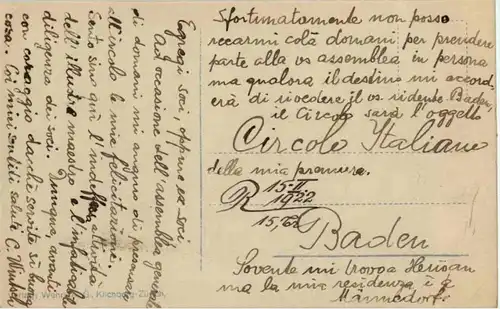 Egregi soci, oppure ex-soci
Ad occasione dell'assemblea generale
di domani mi auguro di presentare
all'circolo le mie felicitazioni.
Canto sino qui l'indefessa attività
dell'illustre maestro e l'infaticabile
diligenza dei soci. Dunque, avanti
con coraggio ascolta servite su buona
cosa. Coi miei saluti C. Winkler
Sfortunatamente non posso
recarmi colà domani per prendere
parte alla vs assemblea in persona
ma qualora il destino mi accord-
erà di rivedere il vs. ridente Baden,
il Circolo sarà l'oggetto
Circolo Italiano
della mia premura.
R 15-II
1922
15,
Baden
Sovente mi trovo a
ma la mia residenza è a
Männedorf.
Kilchberg-Zürich